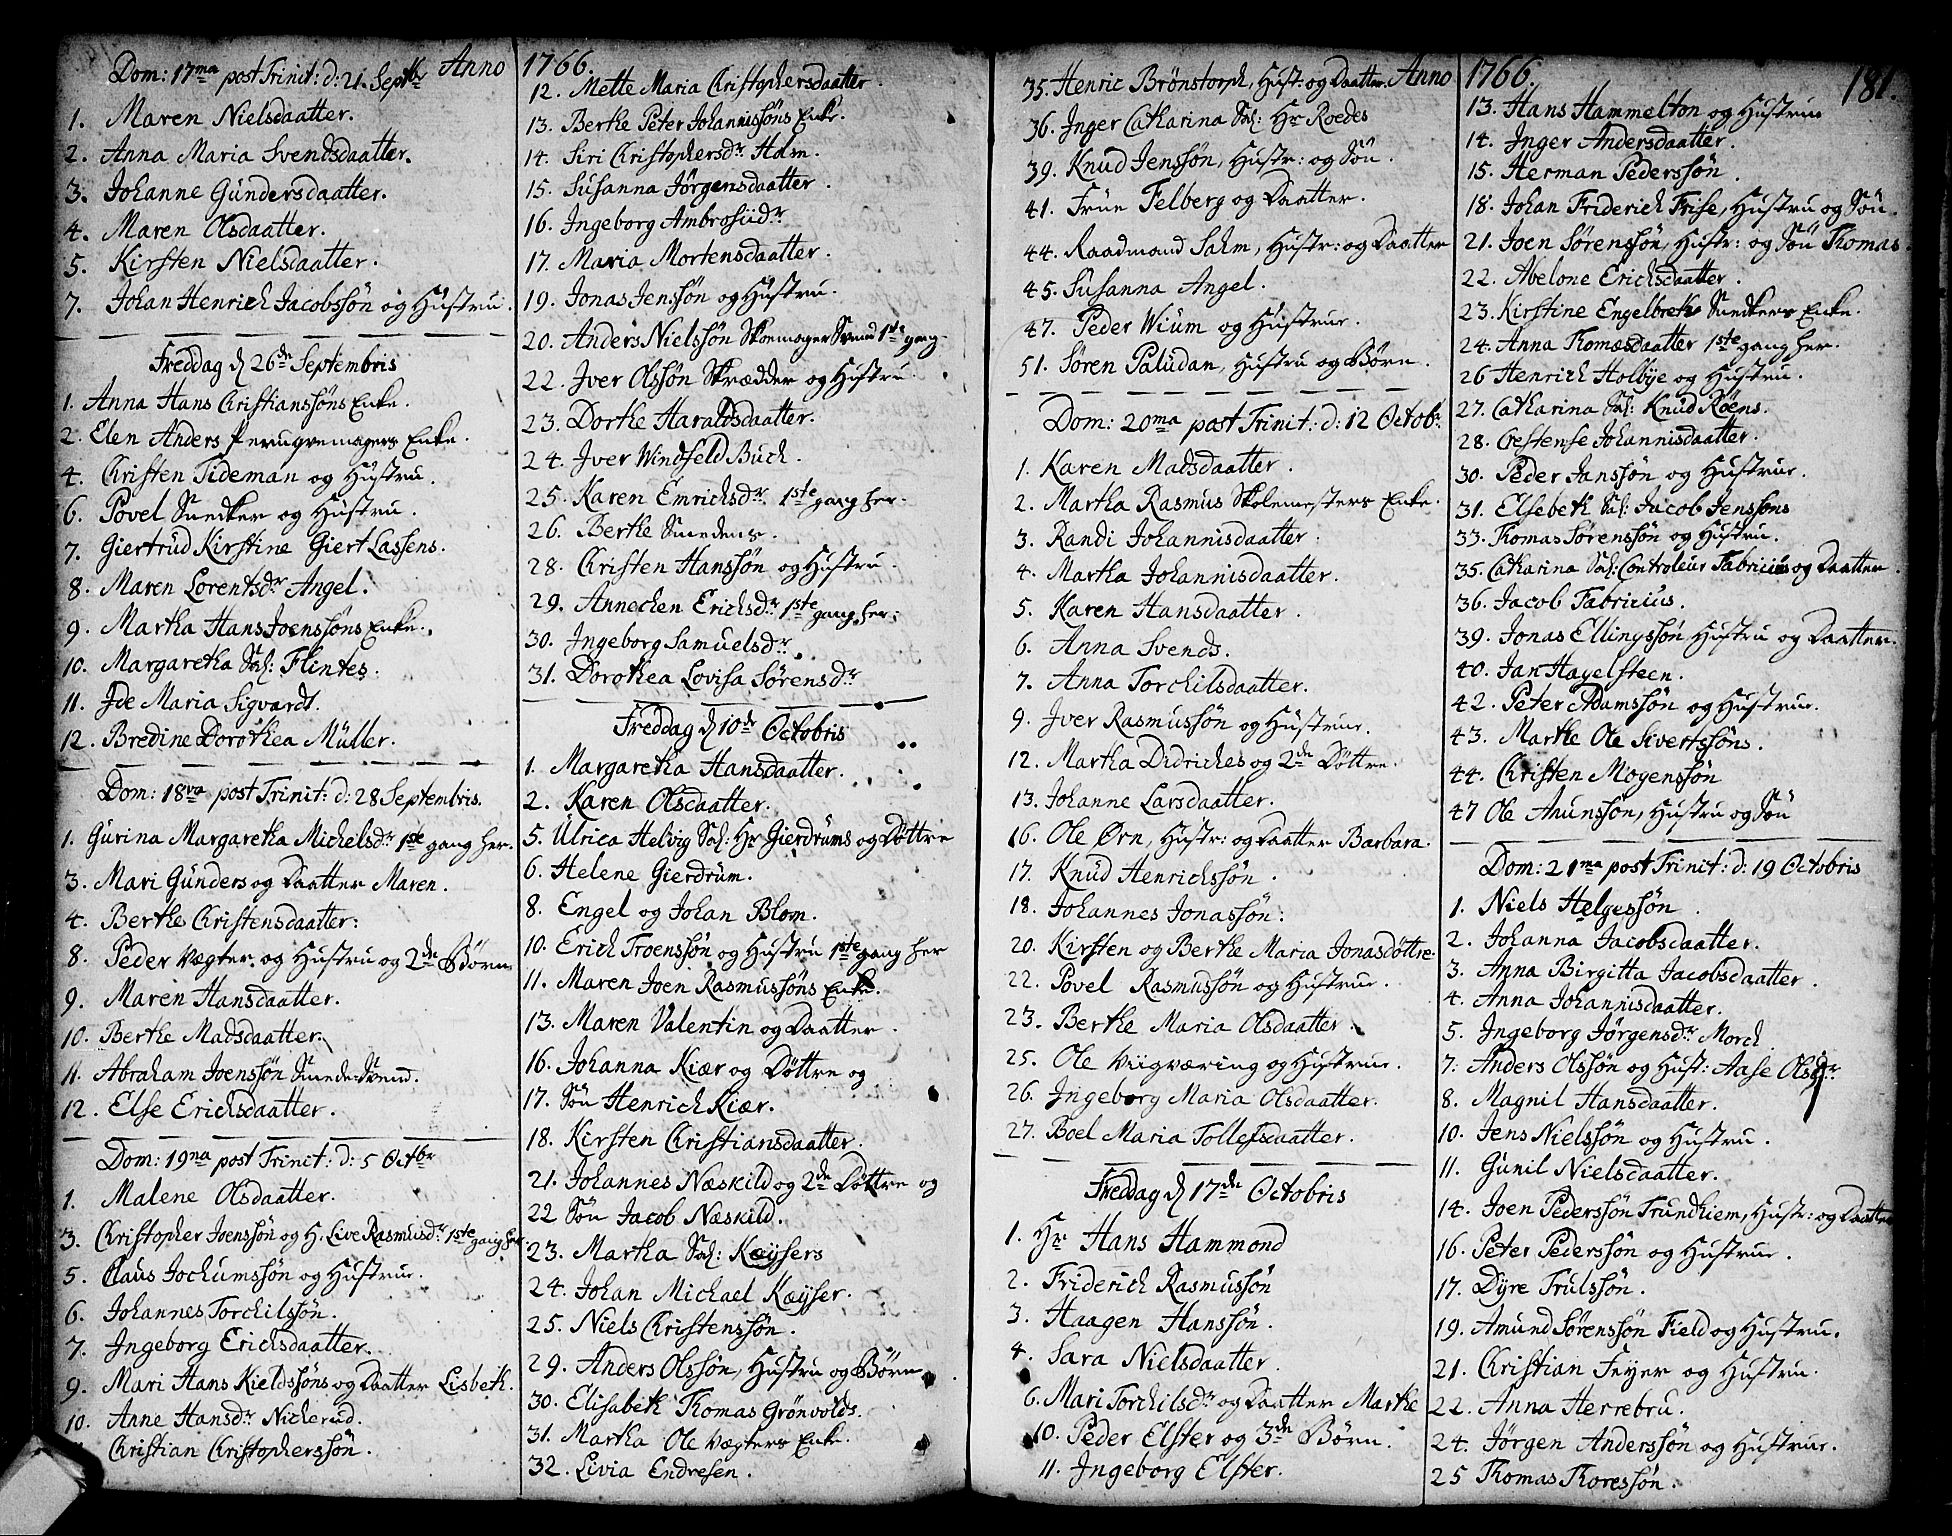 Anno 1766.
Dom: 17ma post Trinit: d: 21. Septbr
1. Maren Nielsdaatter.
2. Anna Maria Svendsdaatter.
3. Johanne Gundersdaatter.
4. Maren Olsdaatter.
5. Kirsten Nielsdaatter.
7. Johan Henrich Jacobssøn og Hustru.
Freddag d 26de Septembris
1. Anna Hans Christianssøns Enke.
2. Elen Anders Peruqvemagers Enke.
4. Christen Tideman og Hustru.
6. Povel Snedker og Hustru.
7. Giertrud Kirstine Giert Lassens.
8. Maren Lorentsdr Angel.
9. Martha Hans Joenssøns Enke.
10. Margaretha Sal: Flintes.
11. Ide Maria Sigvardt.
12. Bredine Dorothea Müller.
Dom: 18va post Trinit: d: 28 Septembris.
1. Gurina Margaretha Michelsdr 1ste gang her.
3. Mari Gunders og Daatter Maren.
4. Berthe Christensdaatter:
8. Peder Vægter og Hustru og 2de Børn
9. Maren Hansdaatter.
10. Berthe Madsdaatter.
11. Abraham Joenssøn Smede-Svend.
12. Else Erichsdaatter.
Dom: 19na post Trinit: d: 5 Octbr
1. Malene Olsdaatter.
3. Christopher Joenssøn og H. Live Rasmusdr 1ste gang her
5. Claus Jochumssøn og Hustrue.
6. Johannes Torchilssøn.
7. Ingeborg Erichsdaatter.
9. Mari Hans Kieldssøns og Daatter Lisbeth.
10. Anne Hansdr Nicherud.
Christian Christopherssøn.
12. Mette Maria Christophersdaatter.
13. Berthe Peter Johannissøns Enke.
14. Siri Christophersdr Ham.
15. Susanna Jørgensdaatter.
16. Ingeborg Ambrosiidr
17. Maria Mortensdaatter.
19. Jonas Jenssøn og Hustru.
20. Anders Nielssøn Skoemager Svend 1ste gang
22. Iver Olssøn Skrædder og Hustru.
23. Dorthe Haraldsdaatter.
24. Iver Windfeld Buch.
25. Karen Emrichsdr. 1ste gang her.
26. Berthe Smedens.
28. Christen Hanssøn og Hustru.
29. Annechen Erichsdr 1ste gang her.
30. Ingeborg Samuelsdr.
31. Dorothea Lovisa Sørensdr
Freddag d 10de Octobris
1. Margaretha Hansdaatter.
2. Karen Olsdaatter.
5. Ulrica Helvig Sal: Hr Gierdrums og Døttre
6. Helene Gierdrum.
8. Engel og Johan Blom.
10. Erich Troenssøn og Hustru 1ste gang her
11. Maren Joen Rasmussøns Enke.
13. Maren Valentin og Daatter.
16. Johanna Kiær og Døttre og
17. Søn Henrich Kiær.
18. Kirsten Christiansdaatter.
21. Johannes Næskild og 2de Døttre og
22 Søn Jacob Næskild.
23. Martha Sal: Kæysers
24. Johan Michael Kæyser.
25. Niels Christenssøn.
29. Anders Olssøn, Hustru og Børn
30. Elisabeth Thomas Grönvolds.
31. Martha Ole Vægters Enke.
32. Livia Endresen.
Anno 1766. 181.
35. Henric Brönstorph, Hust: og Daatter.
36. Inger Catharina Sal: Hr Roedes
39. Knud Jenssøn, Hustr: og Søn.
41. Frue Felberg og Daatter.
44. Raadmand Sahm, Hustr: og Daatter
45. Susanna Angel.
47. Peder Wium og Hustrue.
51. Sören Paludan, Hustru og Børn.
Dom: 20ma post Trinit: d: 12 Octobr.
1. Karen Madsdaatter.
2. Martha Rasmus Skolemesters Enke.
3. Randi Johannisdaatter.
4. Martha Johannisdaatter.
5. Karen Hansdaatter.
6. Anna Svends.
7. Anna Torchilsdaatter.
9. Iver Rasmussøn og Hustrue.
12. Martha Didriches og 2de Døttre.
13. Johanne Larsdaatter.
16. Ole Ørn, Hustr: og Daatter Barbara.
17. Knud Henrichssøn.
18. Johannes Jonassøn:
20. Kirsten og Berthe Maria Jonasdöttre.
22. Povel Rasmussøn og Hustrue.
23. Berthe Maria Olsdaatter
25. Ole Viigværing og Hustrue.
26. Ingeborg Maria Olsdaatter.
27. Boel Maria Tollefsdaatter.
Freddag d 17de Octobris
1. Hr Hans Hammond
2. Friderich Rasmussøn
3. Haagen Hanssøn.
4. Sara Nielsdaatter.
6. Mari Torchilsdr og Daatter Marthe
10. Peder Elster og 3de Børn.
11. Ingeborg Elster.
13. Hans Hammelton og Hustrue
14. Inger Andersdaatter.
15. Herman Pederssøn.
18. Johan Friderich Frise, Hustru og Søn.
21. Joen Sørenssøn, Hustr: og Søn Thomas.
22. Abelone Erichsdaatter.
23. Kirstine Engelbreth Snedkers Enke.
24. Anna Thomæsdaatter 1ste gang her.
26 Henrich Holbye og Hustru.
27. Catharina Sal: Knud Röens.
28. Crestense Johannisdaatter.
30. Peder Janssøn og Hustrue.
31. Elsebeth Sal: Jacob Jenssøns
33. Thomas Sørenssøn og Hustru.
35. Catharina Sal: Controleur Fabricius og Daatter.
36. Jacob Fabricius.
39. Jonas Ellingssøn Hustru og Daatter.
40. Jan Hagelsteen.
42. Peter Adamssøn og Hustrue.
43. Marthe Ole Sivertssøns.
44. Christen Mogenssøn
47 Ole Anunssøn, Hustru og Søn
Dom: 21ma post Trinit: d: 19 Octobris
1. Niels Helgessøn.
2. Johanna Jacobsdaatter.
3. Anna Birgitta Jacobsdaatter.
4. Anna Johannisdaatter.
5. Ingeborg Jørgensdr Morch
7. Anders Olssøn og Hust: Aase Olsdr
8. Magnil Hansdaatter.
10. Jens Nielssøn og Hustru.
11. Gunil Nielsdaatter.
14. Joen Pederssøn Trundhiem, Hustr: og Daatter
16. Peter Pederssøn og Hustrue.
17. Dyre Trulssøn.
19. Amund Sørenssøn Field og Hustru.
21. Christian Feyer og Hustru.
22. Anna Herrebru.
24. Jörgen Anderssøn og Hustrue.
25 Thomas Thoressøn.